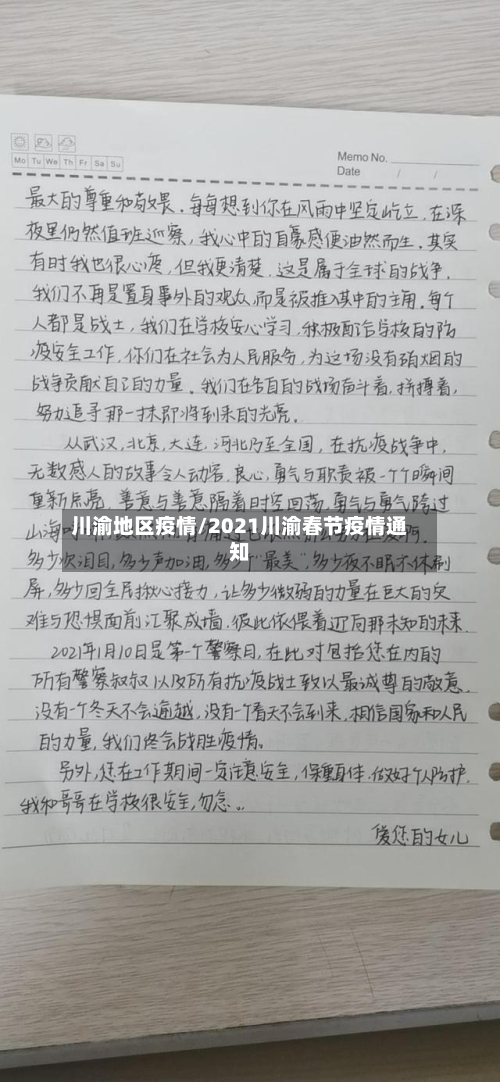 Memo No.
Mo Tu We Th Fr Sa Su
Date / /
最大的尊重和敬畏。每每想到你在风雨中坚定屹立,在深
夜里仍然值班巡察,我心中的自豪感便油然而生。其实
有时我也很心疼,但我更清楚,这是属于全球的战争,
我们不再是置身事外的观众,而是被推入其中的主角。每个
人都是战士,我们在学校安心学习,积极配合学校的防
疫安全工作,你们在社会为人民服务,为这场没有硝烟的
战争贡献自己的力量。我们在各自的战场奋斗着,拼搏着,
努力追寻那一抹即将到来的光亮。
从武汉,北京,大连,河北乃至全国,在抗疫战争中,
无数感人的故事令人动容,良心,勇气与职责被一个个瞬间
重新点亮,善意与善意隔着时空回荡,勇气与勇气跨过
山海
川渝地区疫情/2021川渝春节疫情通
知
多少次泪目,多少声加油,多少"最美",多少夜不眠不休刷
屏,多少回全民揪心接力,让多少微弱的力量在巨大的灾
难与恐惧面前汇聚成墙,彼此依偎着迈向那未知的未来。
2021年1月10日是第一个警察日,在此对包括您在内的
所有警察叔叔以及所有抗疫战士致以最诚尊的敬意,
没有一个冬天不会逾越,没有一个春天不会到来,相信国家和人民
的力量,我们终会战胜疫情。
另外,您在工作期间一定注意安全,保重身体,做好个人防护,
我和哥哥在学校很安全,勿念。。
爱您的女儿